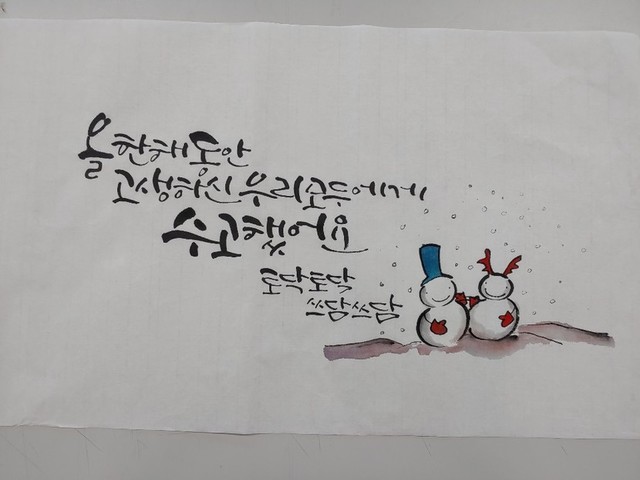 올 한해 동안
고생하신 우리 모두에게
수고했어요
토닥토닥
쓰담쓰담